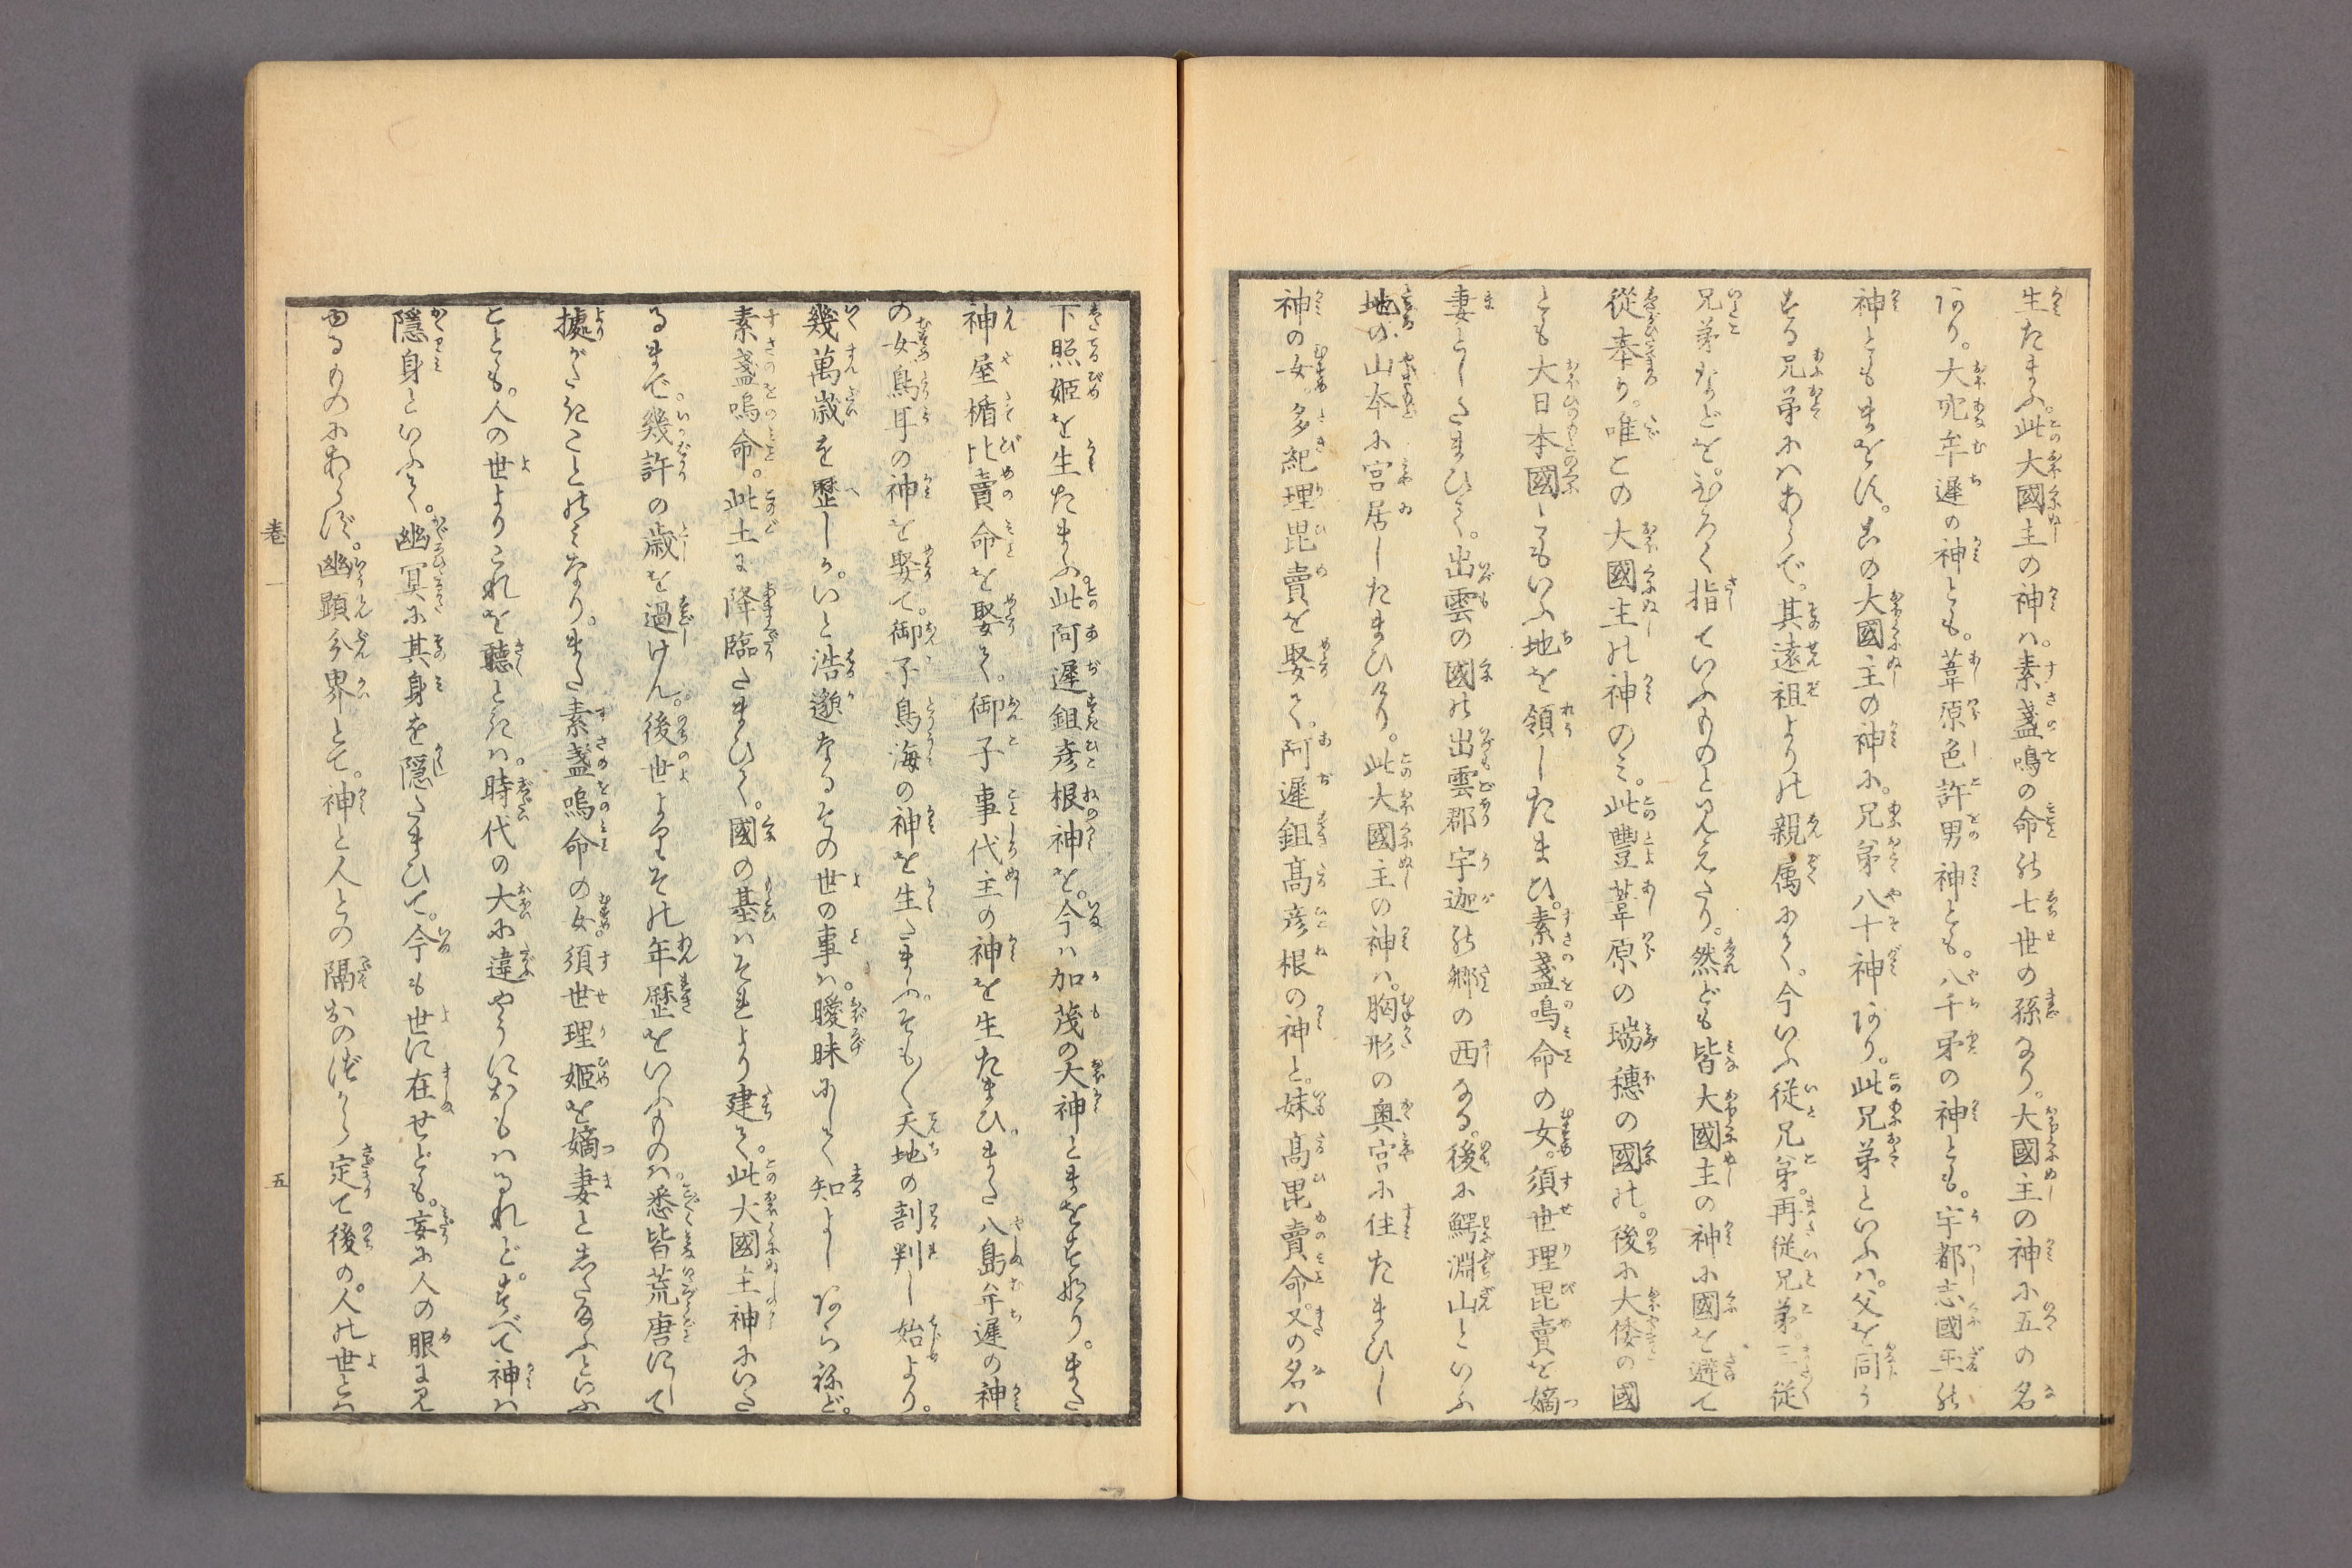 生たまふ。此大國主の神ハ。素盞鳴の命の七世の孫なり。大國主の神に五の名
あり。大穴牟遅の神とも。葦原色許男神とも。八千矛の神とも。宇都志國玉の
神ともまをす。この大國主の神に。兄弟八十神あり。此兄弟といふハ。父を同う
する兄弟にハあらで。其遠祖よりの親属にて。今いふ従兄弟。再従兄弟。三従
兄弟などを。ひろく指ていふものと見えたり。然ども皆大國主の神に國を避て
従奉り。唯この大國主の神のミ。此豐葦原の瑞穗の國の。後に大倭の國
とも大日本國ともいふ地を領したまひ。素盞鳴命の女。須世理毘賣を嫡
妻としたまひて。出雲の國の出雲郡宇迦の郷の西なる。後に鰐淵山といふ
地の山本に宮居したまひけり。此大國主の神ハ。胸形の奥宮に住たまひし
神の女。多紀理毘賣を娶て。阿遅鉏高彦根の神と。妹高毘賣命又の名ハ
下照姫を生たまふ。此阿遅鉏彦根神を。今ハ加茂の大神とまをすなり。また
神屋楯比賣命を娶て。御子事代主の神を生たまひ。また八島牟遅の神
の女鳥耳の神を娶て。御子鳥海の神を生たまふ。そも〳〵天地の剖判し始より。
幾萬歳を歴しか。いと浩邈なるその世の事ハ。曖昧にして知よしあらねど。
素盞嗚命。此土に降臨たまひて。國の基ハそれより建て。此大國主神にいた
るまで。幾許の歳を過けん。後世よりその年歴をいふものハ。悉皆荒唐にして
據がたきことのミなり。また素盞嗚命の女。須世理姫を嫡妻としたまふといふ
ことも。人の世よりこれを聴ときハ。時代の大に違やうにおもハるれど。すべて神ハ
隠身といふて。幽冥に其身を隠たまひて。今も世に在せども。妄に人の眼に見
ゆるものにあらず。幽顕分界とて。神と人との隔おのづから定て後の。人の世とハ
巻一
五